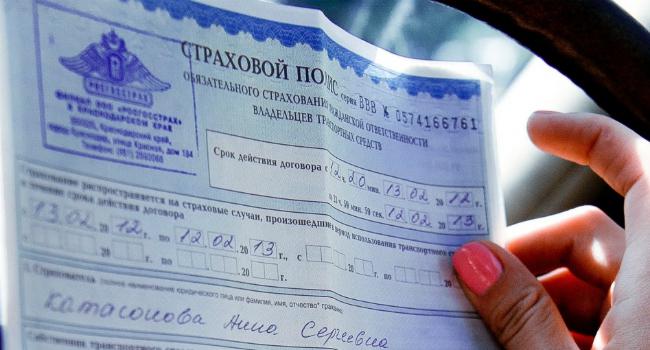 РОСГОССТРАХ
ФИЛИАЛ ООО «РОСГОССТРАХ»
В КРАСНОДАРСКОМ КРАЕ
Краснодарский край,
город Краснодар, улица Красная, дом 184
СТРАХОВОЙ ПОЛИС серия ВВВ № 0574166761
ОБЯЗАТЕЛЬНОГО СТРАХОВАНИЯ ГРАЖДАНСКОЙ ОТВЕТСТВЕННОСТИ
ВЛАДЕЛЬЦЕВ ТРАНСПОРТНЫХ СРЕДСТВ
Срок действия договора с 12 ч. 20 мин. 13.02 20 12 г.
по 23 ч. 59 мин. 59 сек. 12.02 20 13 г.
Страхование распространяется на страховые случаи, произошедшие в период использования транспортного
в течение срока действия договора
13.02 20 12 г. по 12.02 20 13 г., с 20 г. по
20 г. 20 г.
1. Страхователь (полное наименование юридического лица или фамилия, имя, отчество* гражданина
Катасонова Анна Сергеевна
Собственник транспортного